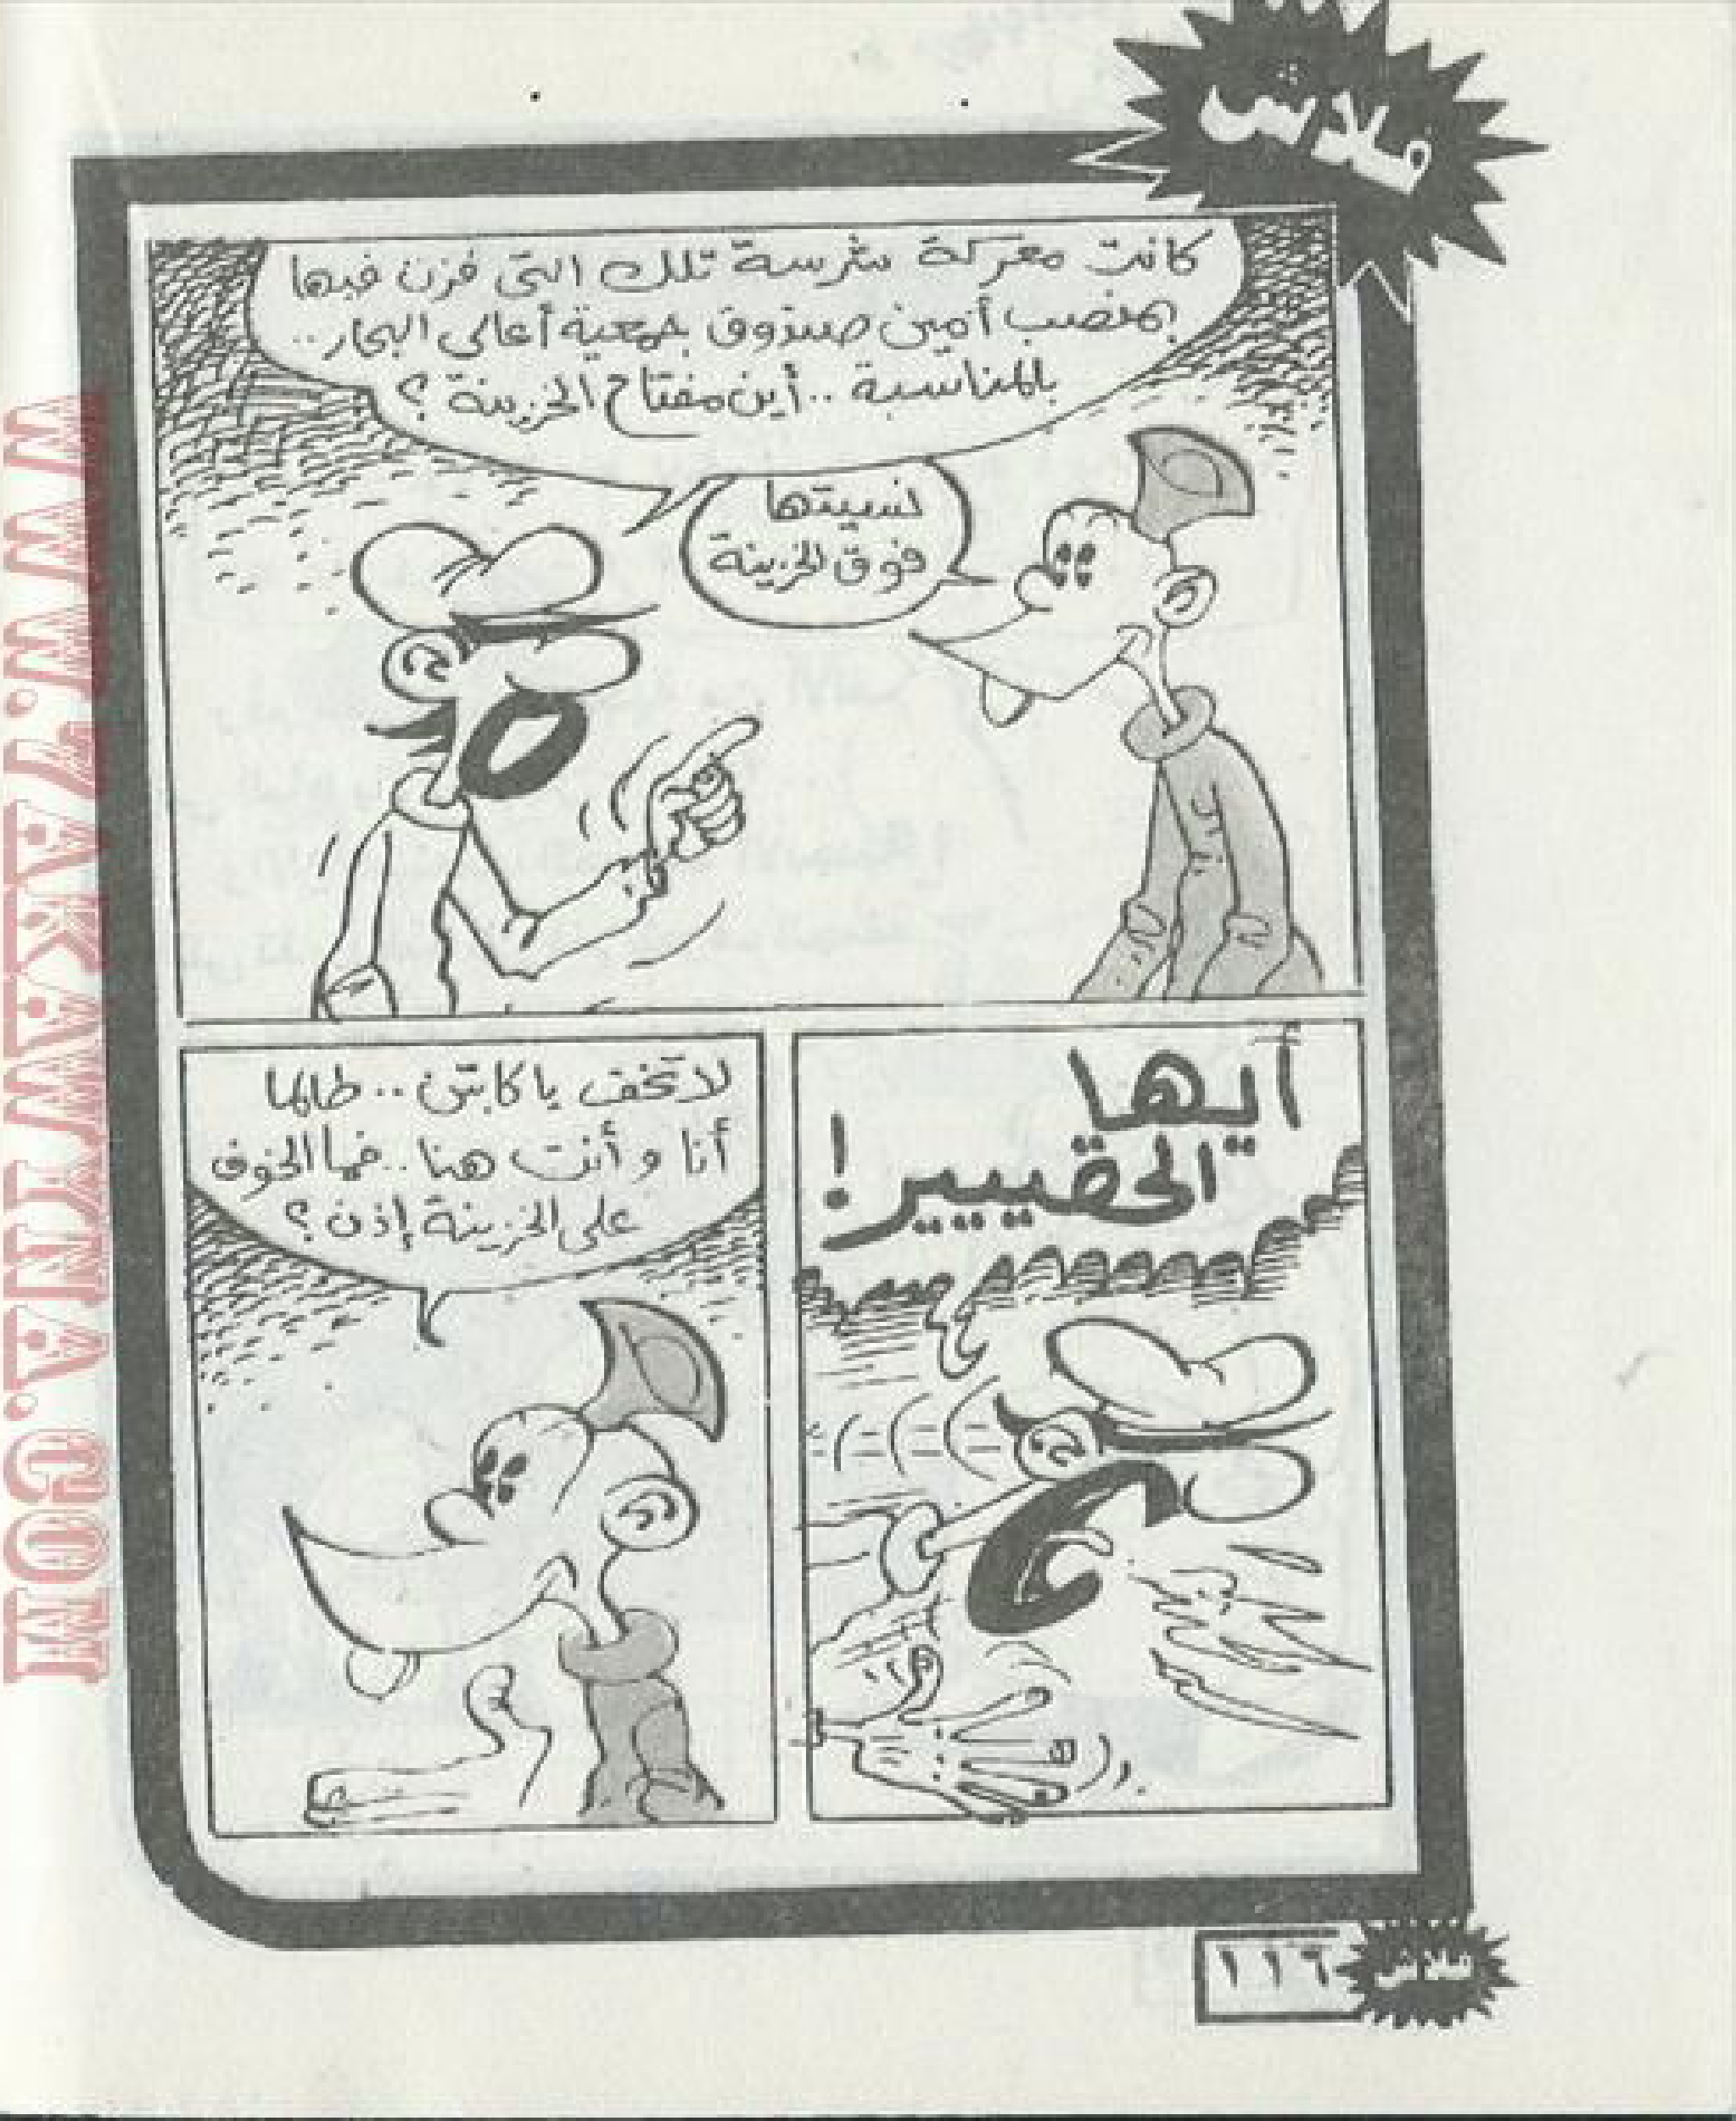 فلاش
كانت معركة شرسة تلك التى فزت فيها
بمنصب أمين صندوق جمعية أعالى البحار..
بالمناسبة .. أين مفتاح الخزينة ؟
نسيتها
فوق الخزينة
أيها
الحقييير !
لا تخف يا كابتن .. طالما
أنا و أنت هنا .. فما الخوف
على الخزينة إذن ؟
١١٦
فلاش
WWW.7AKAWTNA.COM